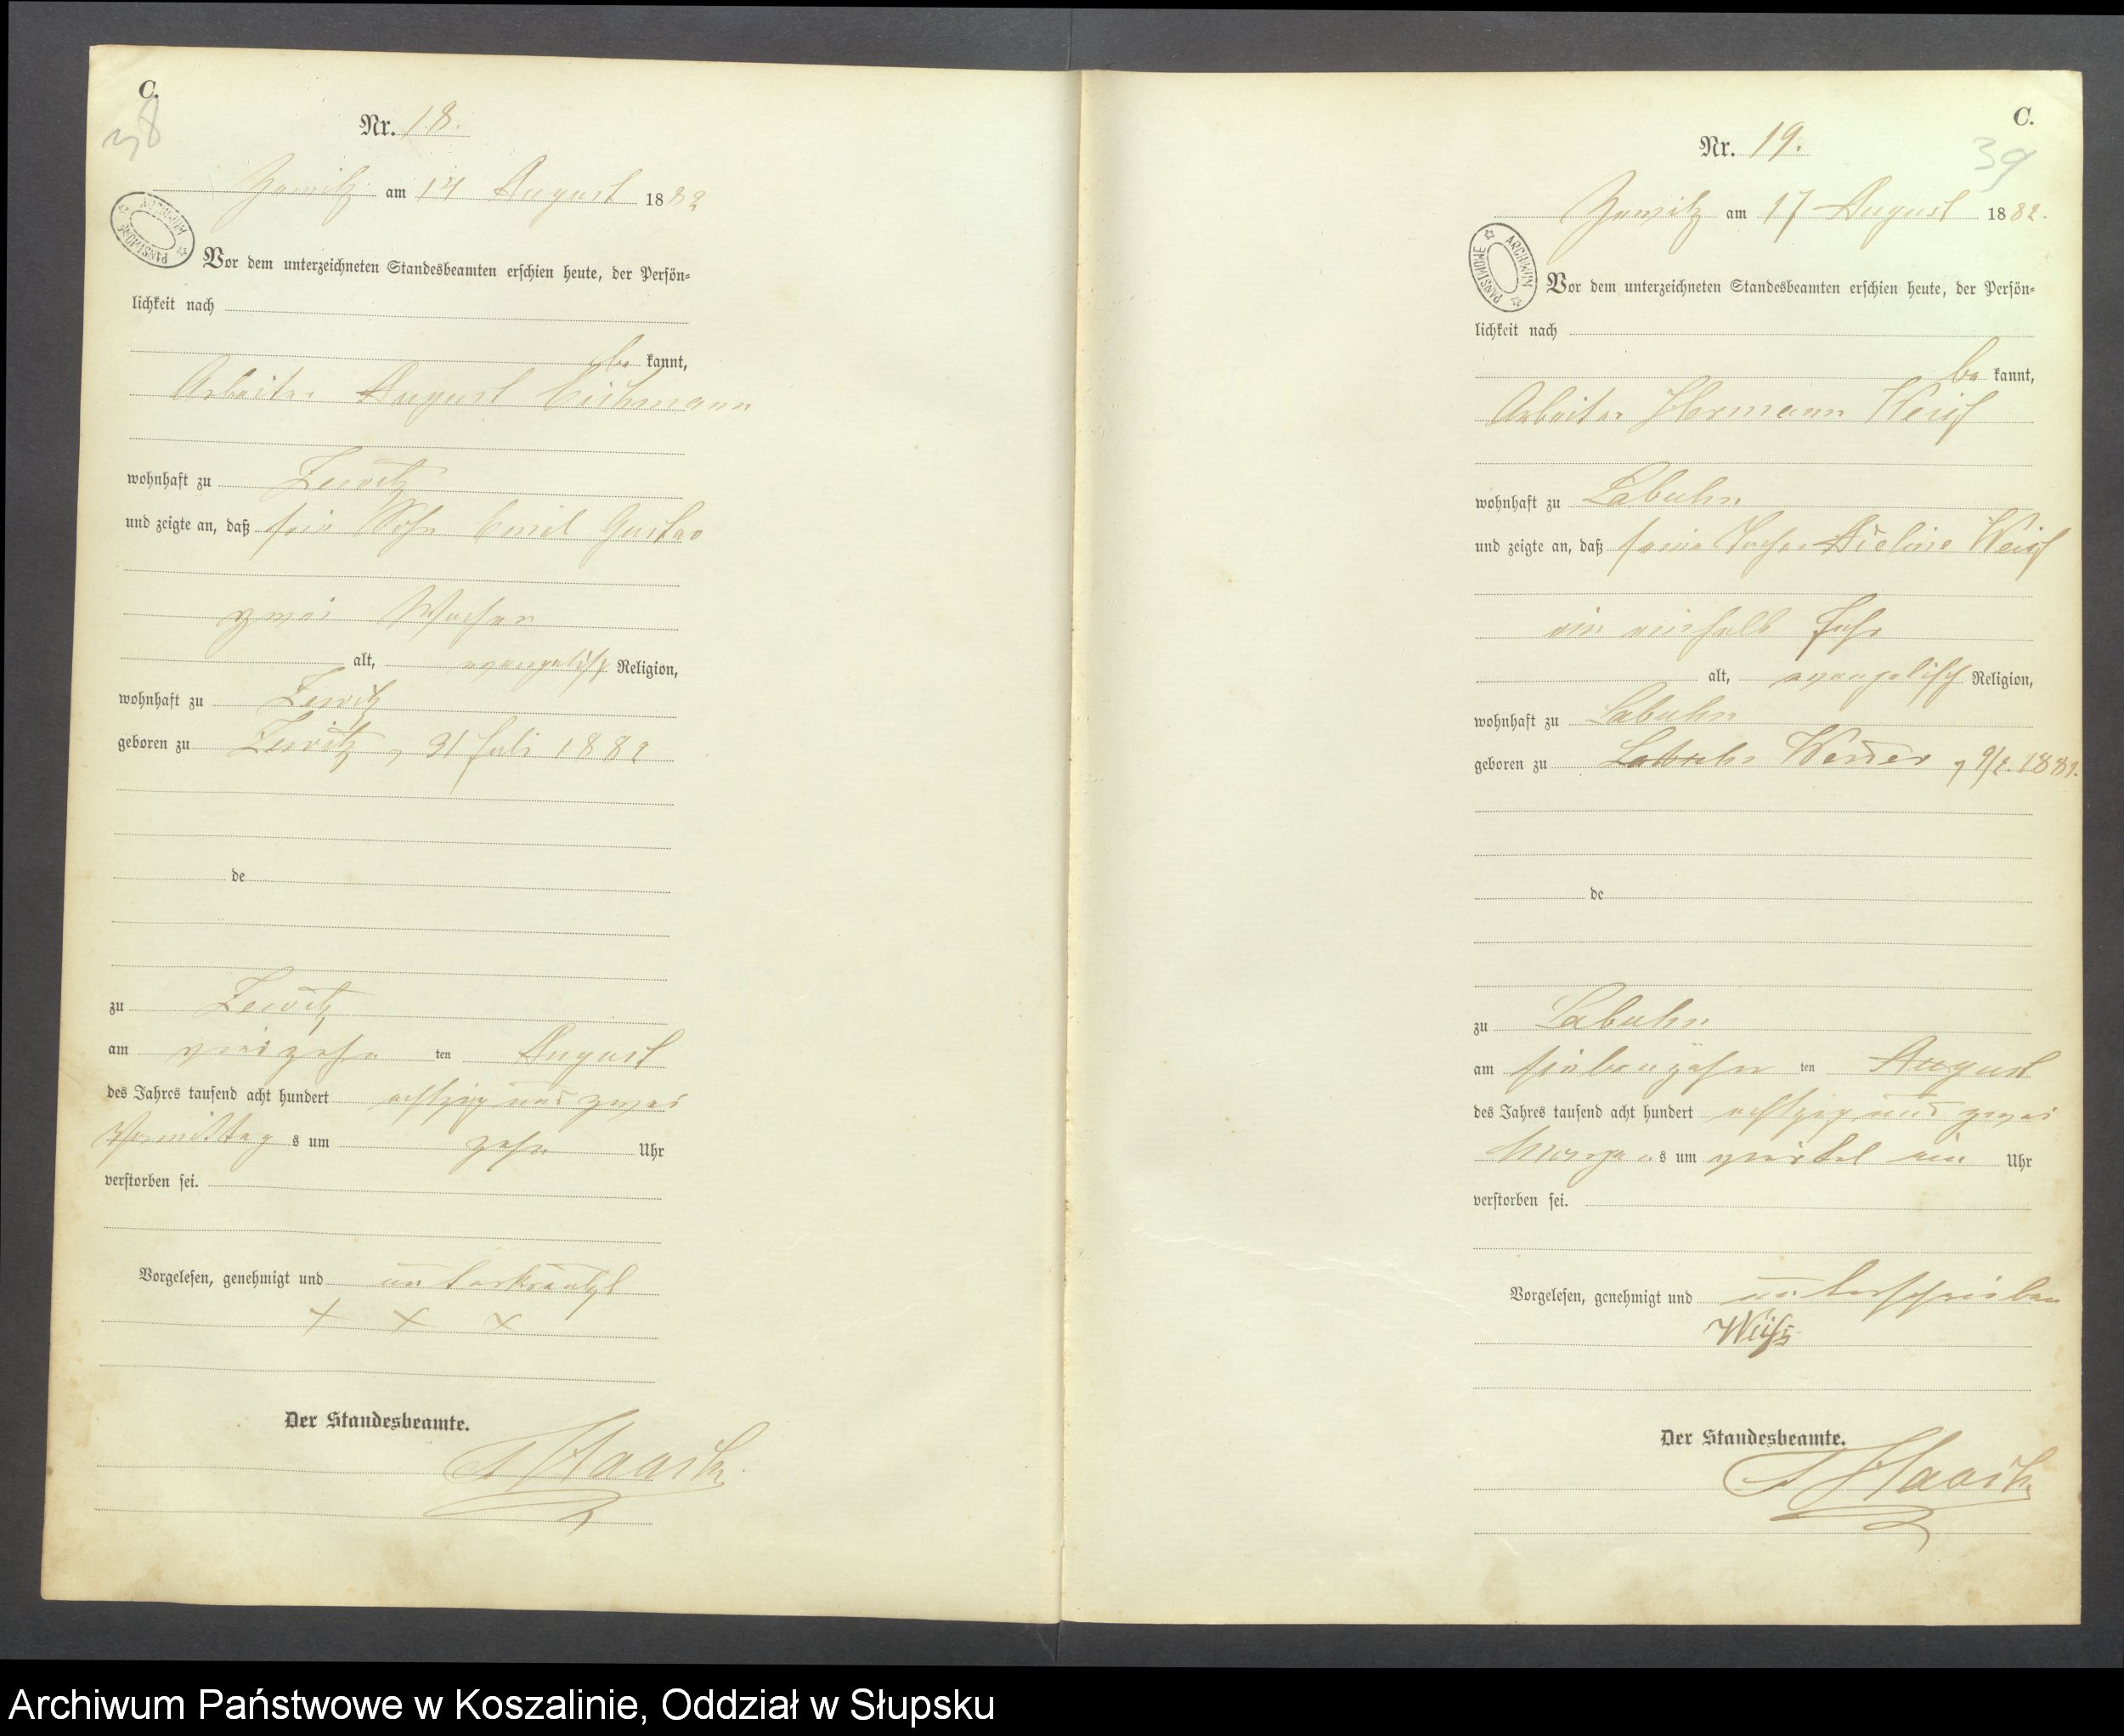 C.
38
Nr. 18.
am 14 August 1882
ARCHIWUM PAŃSTWOWE
Vor dem unterzeichneten Standesbeamten erschien heute, der Persön-
lichkeit nach
be kannt,
Arbeiter August Eichmann
wohnhaft zu Zewitz
und zeigte an, daß sein Sohn Emil Gustav
zwei Wochen
alt, evangelisch Religion,
wohnhaft zu Zewitz
geboren zu Zewitz 31 Juli 1882
de
zu Zewitz
am vierzehn ten August
des Jahres tausend acht hundert achtzig und zwei
Vormittag s um zehn Uhr
verstorben sei.
Vorgelesen, genehmigt und unterkreuzt
+ + +
Der Standesbeamte.
C.
39
Nr. 19.
am 17 August 1882.
ARCHIWUM PAŃSTWOWE
Vor dem unterzeichneten Standesbeamten erschien heute, der Persön-
lichkeit nach
be kannt,
Arbeiter Hermann Weiß
wohnhaft zu Labuhn
und zeigte an, daß seine Weiß
ein einhalb Jahr
alt, evangelisch Religion,
wohnhaft zu Labuhn
geboren zu 1881.
de
zu Labuhn
am siebenzehn ten August
des Jahres tausend acht hundert achtzig und zwei
Morgen s um viertel ein Uhr
verstorben sei.
Vorgelesen, genehmigt und unterschrieben
Weiß
Der Standesbeamte.
Archiwum Państwowe w Koszalinie, Oddział w Słupsku